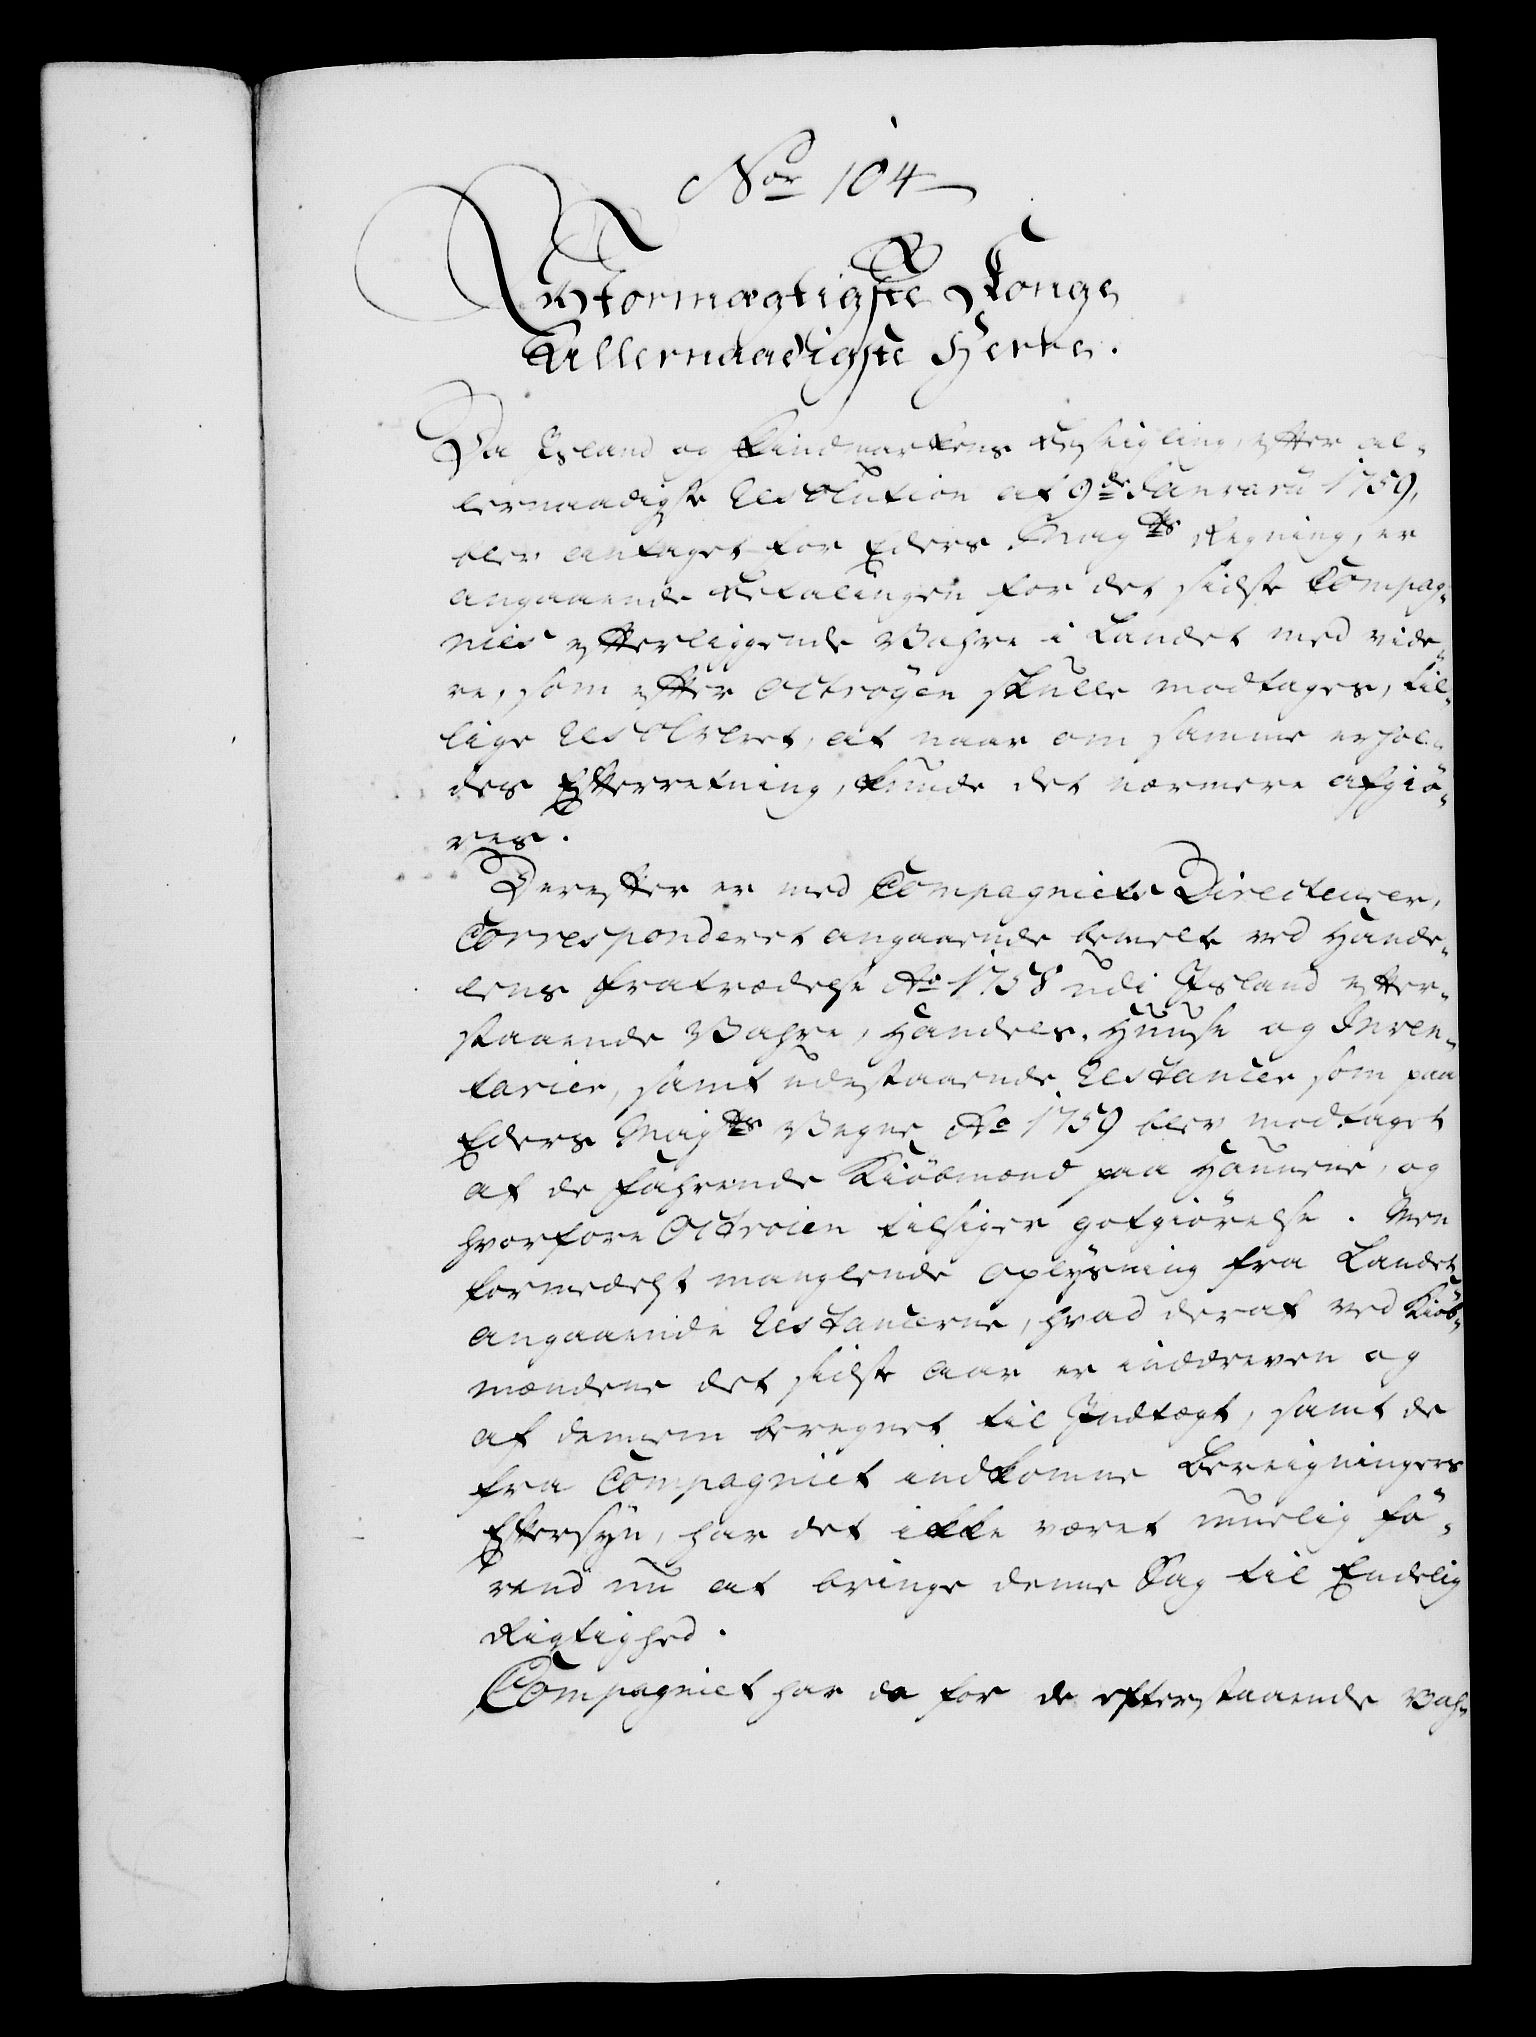 Nor 104
Stormægtigste Konge
Allernaadigste Herre.
Da Island og Findmarkens Beseigling, efter al-
lernaadigste Resolution af 9de Januarii 1759,
blev antaget for Eders Mayts Regning, er
angaaende Betalingen for det sidste Compag-
nies efterliggende Vahre i Landet med vide-
re, som efter Octroyen skulle modtages, til-
lige Resolveret, at naar om samme erhol-
des Efterretning, kunde det nærmere afgiö-
res.
Derefter er med Compagniets Directeurer,
Correspondert angaaende bemelte ved Hande-
lens fratrædelse Ao 1758 udi Island efter-
staaende Vahre, Handels-Huuse og Inven-
tarier, samt udestaaende Restancer som paa
Eders Mayts Vegne Ao 1759 blev modtaget
af de fahrende Kiöbmænd paa Haunene, og
hvorfore Octroien tilsiger gotgiörelse. Men
formedelst manglende oplysning fra Landet
angaaende Restancerne, hvad deraf ved Kiöb-
mændene det sidste aar er inddreven og
af dennem beregnet til Indtægt, samt de
fra Compagniet indkomne Bereigningers
Eftersyn, har det ikke været muelig fö-
rend nu at bringe denne Sag til Endelig
Rigtighed.
Compagniet har da for de efterstaaende Vah-